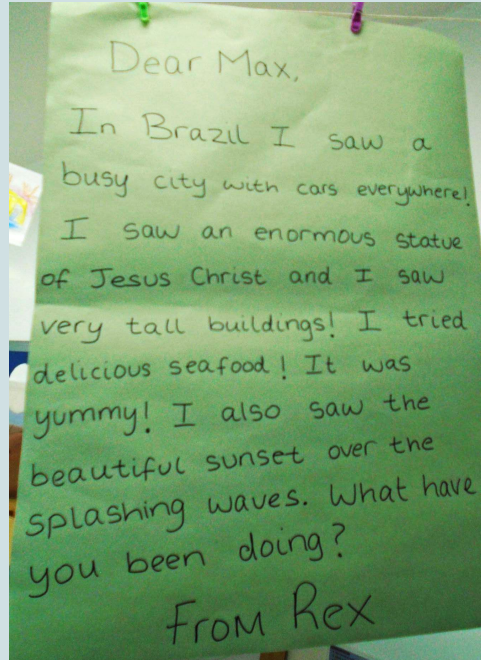 Dear Max,
In Brazil I saw a
busy city with cars everywhere!
I saw an enormous statue
of Jesus Christ and I saw
very tall buildings! I tried
delicious seafood! It was
yummy! I also saw the
beautiful sunset over the
splashing waves. What have
you been doing?
From Rex